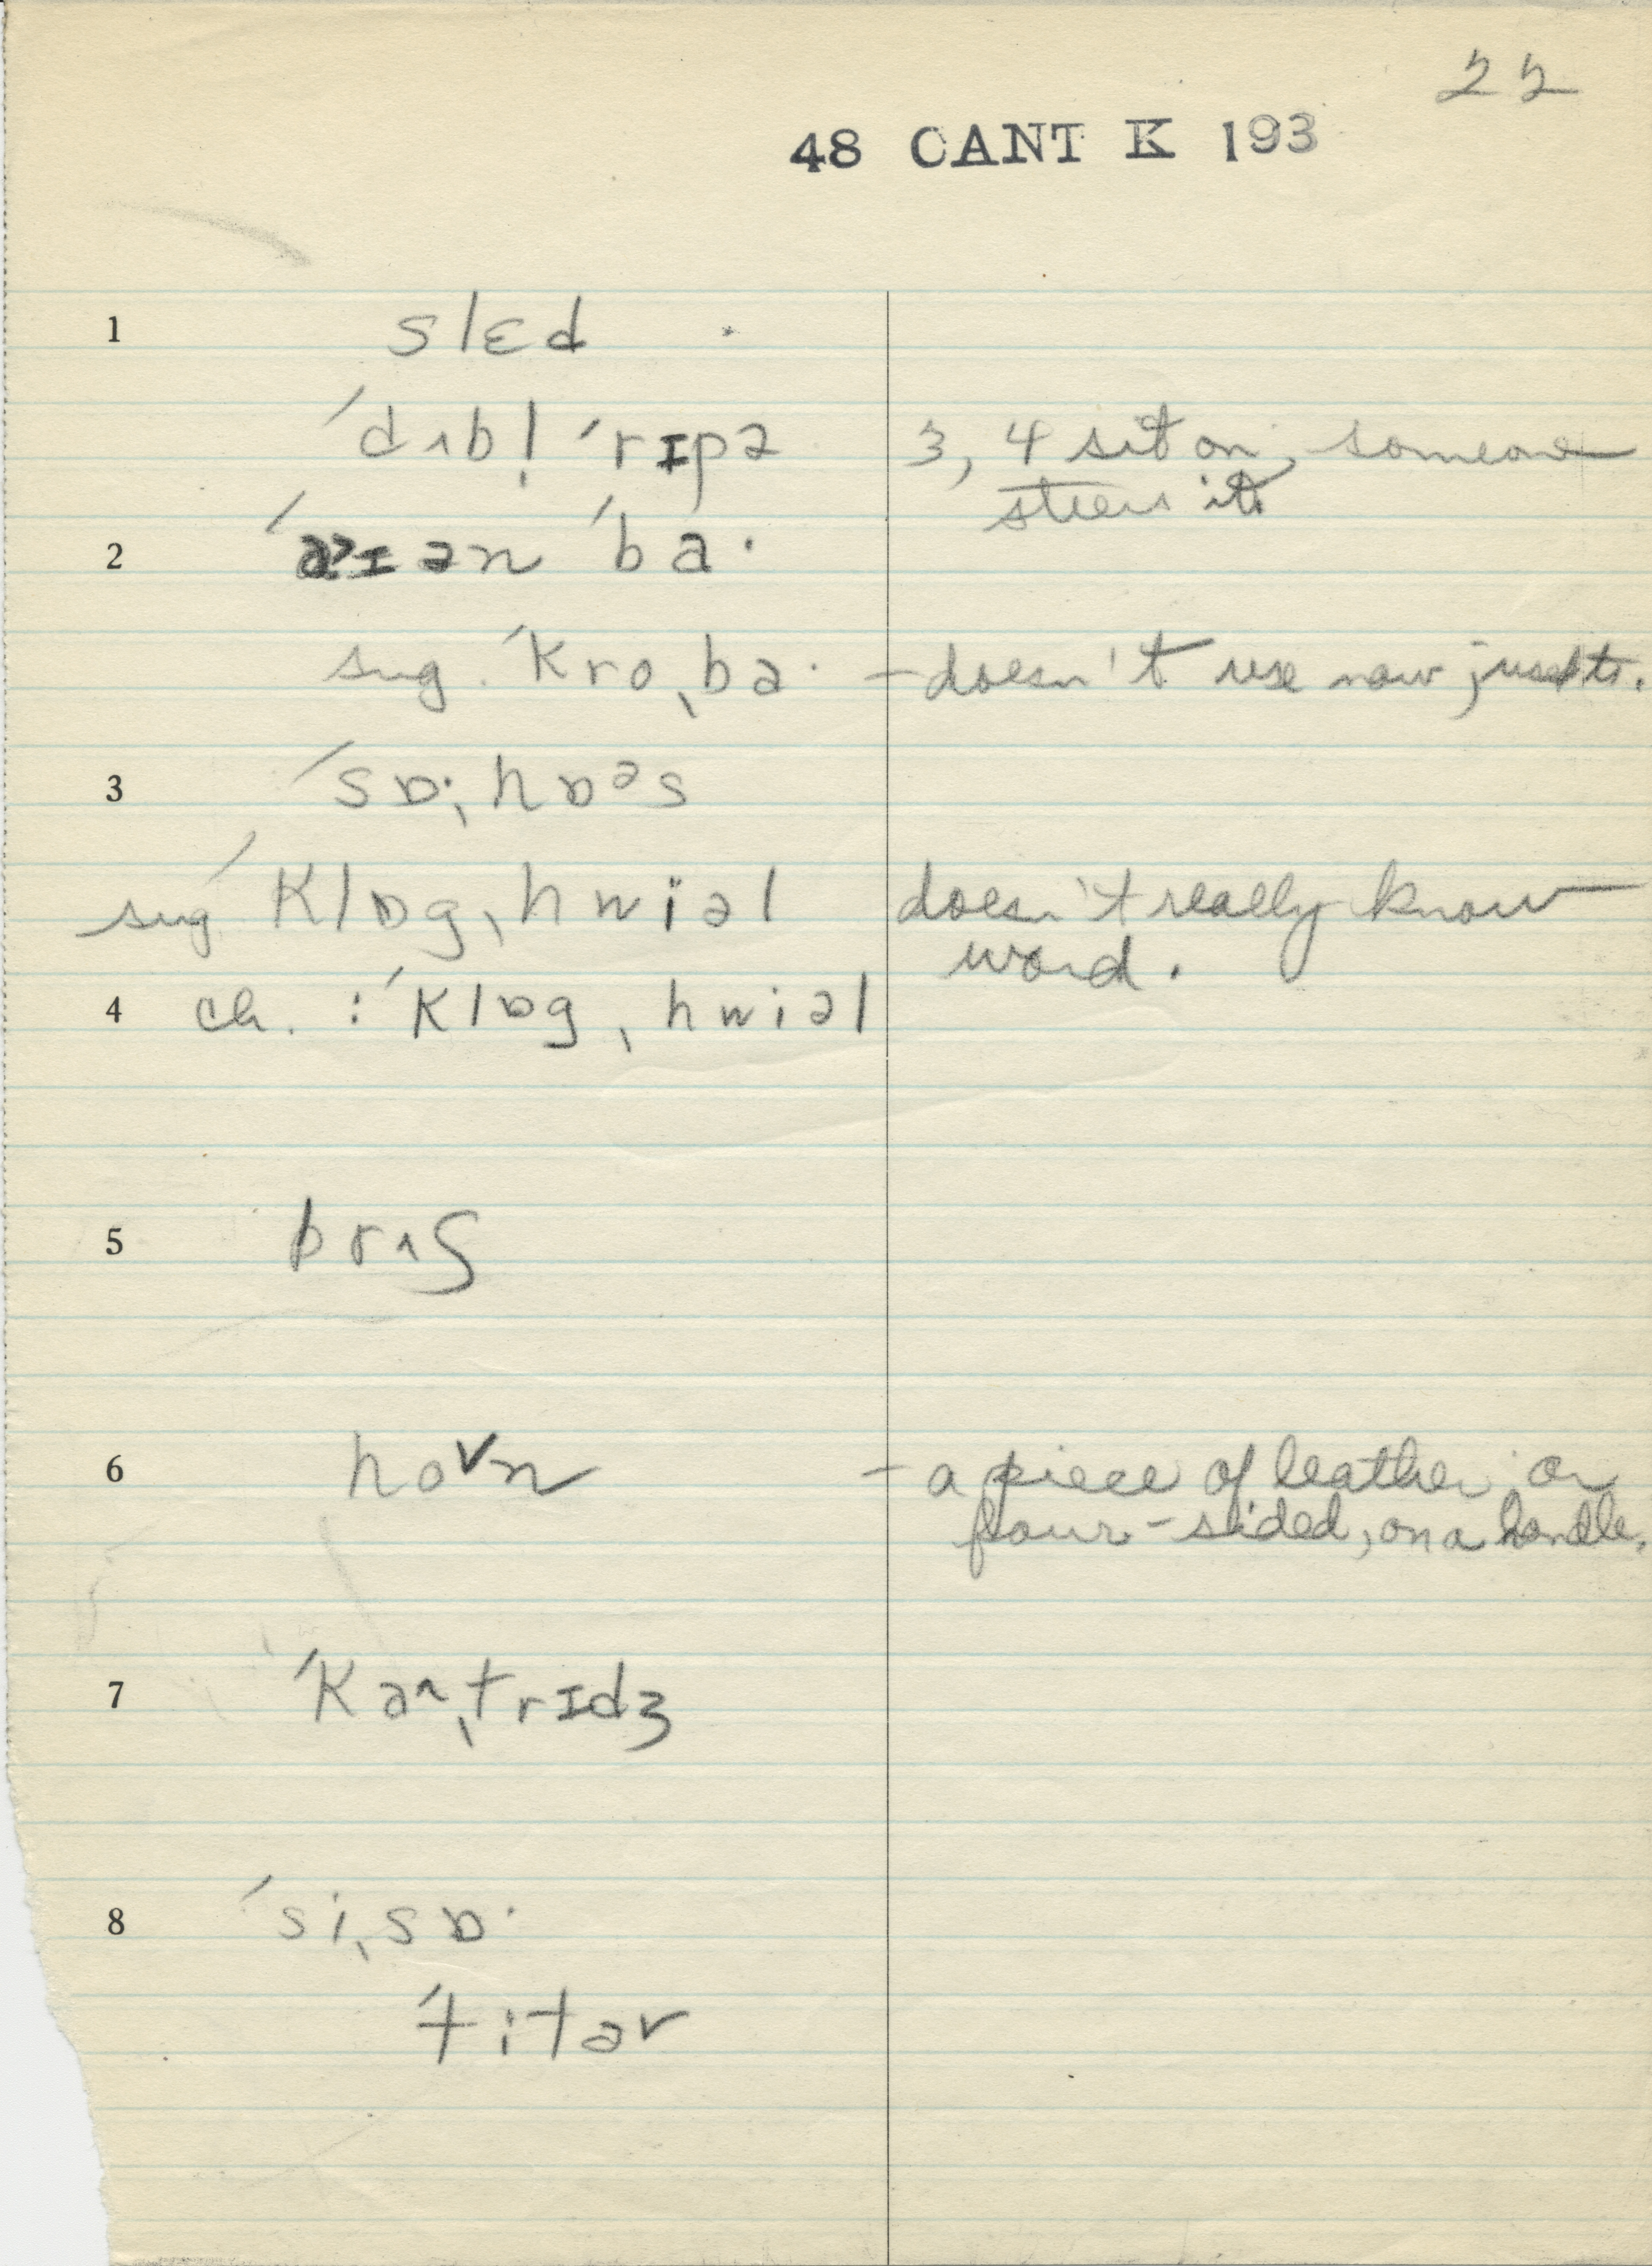 22
48 CANT K 193
1 slɛd
ˈdʌbl̩ ˈrɪpə 3, 4 sit on, someone
steers it
2 ən ˈba·
sug. ˈkroˌba· – doesn't use now
3 ˈsɒ·ˌhɒᵊs
sug ˈklɒgˌhwiəl doesn't really know
word.
4 ch. : ˈklɒgˌhwiəl
5 brʌʃ
6 hoᵛn – a piece of leather or
four-sided, on a handle.
7 ˈkaˌtrɪdʒ
8 ˈsiˌsɒ·
ˈtitər